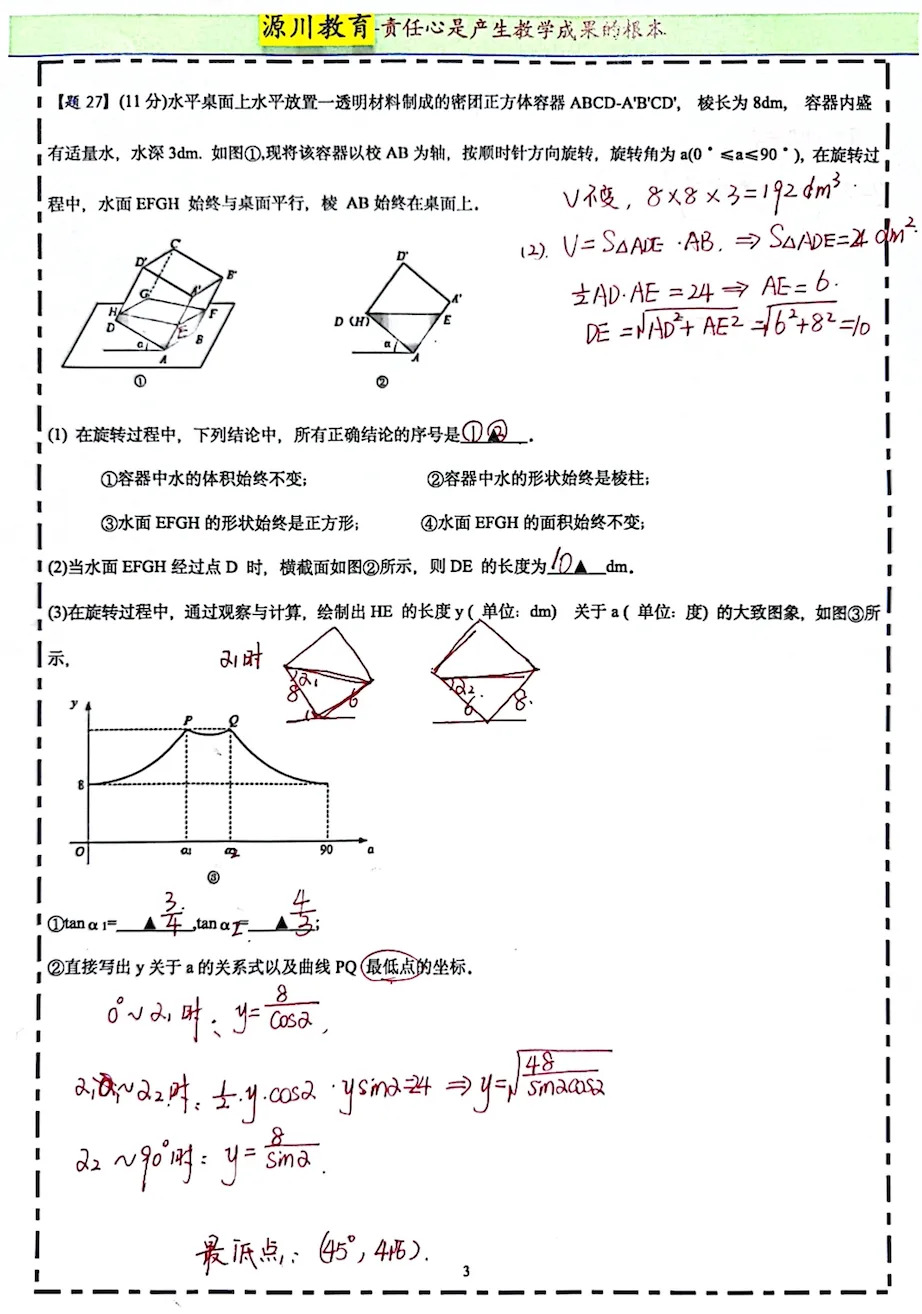 源川教育-責任心是产生教学成果的根本
【题 27】(11 分)水平桌面上水平放置一透明材料制成的密团正方体容器 ABCD-A'B'CD', 棱长为 8dm, 容器内盛
有适量水, 水深 3dm. 如图①,现将该容器以校 AB 为轴, 按顺时针方向旋转, 旋转角为 a(0°≤a≤90°), 在旋转过
程中, 水面 EFGH 始终与桌面平行, 棱 AB 始终在桌面上.
V不变, 8×8×3=192dm³.
(2). V=S△ADE·AB. ⇒ S△ADE=24dm².
½AD·AE=24 ⇒ AE=6.
DE=√AD²+AE²=√6²+8²=10
C' D' B' A' G H F D E B α A
①
D' A' D (H) E α A
②
(1) 在旋转过程中, 下列结论中, 所有正确结论的序号是①②▲.
①容器中水的体积始终不变; ②容器中水的形状始终是棱柱;
③水面 EFGH 的形状始终是正方形; ④水面 EFGH 的面积始终不变;
(2)当水面 EFGH 经过点 D 时, 横截面如图②所示, 则 DE 的长度为10▲dm.
(3)在旋转过程中, 通过观察与计算, 绘制出 HE 的长度 y ( 单位: dm) 关于 a ( 单位: 度) 的大致图象, 如图③所
示,
α₁时 α₁ 8 6 α₂ 6 8
y P Q 8 O α₁ α₂ 90 a
③
①tan α 1=▲3/4,tan α 2=▲4/3;
②直接写出 y 关于 a 的关系式以及曲线 PQ 最低点的坐标.
0°~α₁时: y=8/cosα,
α₁~α₂时: ½·y·cosα·ysinα=24 ⇒ y=√48/sinαcosα
α₂~90°时: y=8/sinα.
最低点: (45°, 4√6).
3